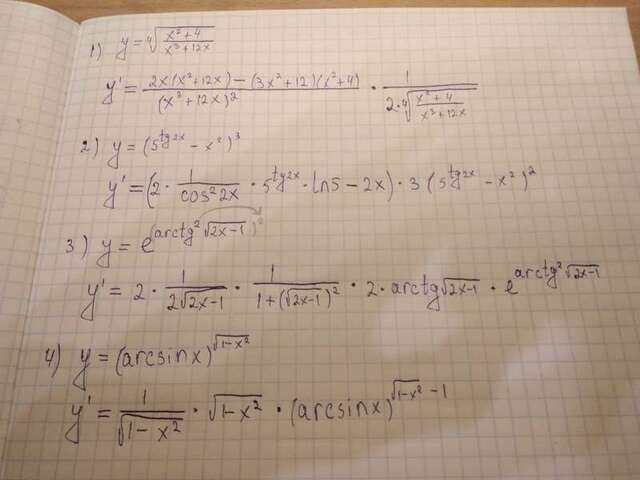 1) y = ⁴√((x²+4)/(x³+12x))
y' = (2x(x²+12x) − (3x²+12)(x²+4))/((x³+12x)²) · 1/(2·⁴√((x²+4)/(x³+12x)))
2) y = (5^(tg2x) − x²)³
y' = (2 · 1/(cos²2x) · 5^(tg2x) · ln5 − 2x) · 3 (5^(tg2x) − x²)²
3) y = e^(arctg² √(2x−1))
y' = 2 · 1/(2√(2x−1)) · 1/(1+(√(2x−1))²) · 2 · arctg√(2x−1) · e^(arctg² √(2x−1))
4) y = (arcsinx)^(√(1−x²))
y' = 1/(√(1−x²)) · √(1−x²) · (arcsinx)^(√(1−x²) −1)